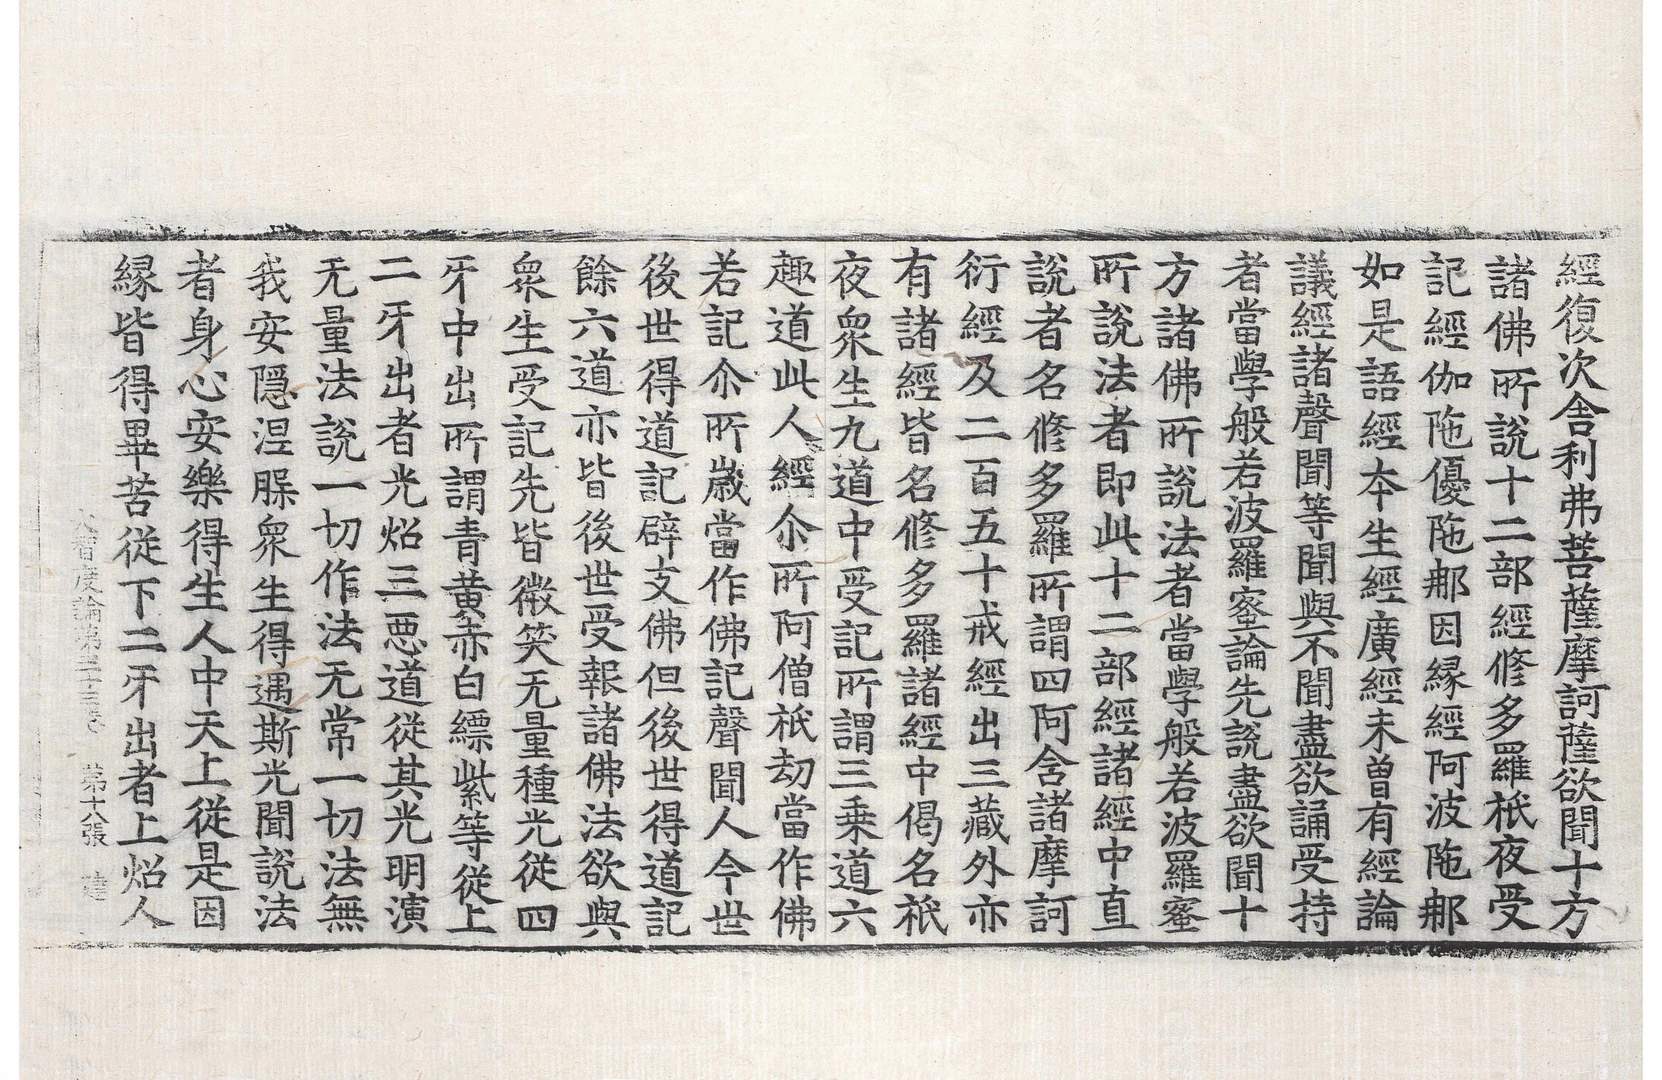 經復次舍利弗菩薩摩訶薩欲聞十方
諸佛所說十二部經修多羅祇夜受
記經伽陁優陁那因緣經阿波陁那
如是語經本生經廣經未曾有經論
議經諸聲聞等聞與不聞盡欲誦受持
者當學般若波羅蜜論先說盡欲聞十
方諸佛所說法者當學般若波羅蜜
所說法者即此十二部經諸經中直
說者名修多羅所謂四阿含諸摩訶
衍經及二百五十戒經出三藏外亦
有諸經皆名修多羅諸經中偈名祇
夜衆生九道中受記所謂三乘道六
趣道此人經尒所阿僧祇劫當作佛
若記尒所歲當作佛記聲聞人今世
後世得道記辟支佛但後世得道記
餘六道亦皆後世受報諸佛法欲與
衆生受記先皆微笑无量種光從四
牙中出所謂青黃赤白縹紫等從上
二牙出者光炤三惡道從其光明演
无量法說一切作法无常一切法無
我安隱涅槃衆生得遇斯光聞說法
者身心安樂得生人中天上從是因
緣皆得畢苦從下二牙出者上炤人
大智度論第三十三卷 第十八張